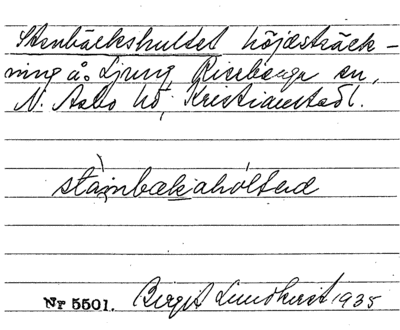 Stenbäckshultet höjdsträck-
ning å. Ljung Riseberga sn,
N. Åsbo hd, Kristianstad l.
stàinbækahólted
Nr 5501. Birgit Lundkvist 1935